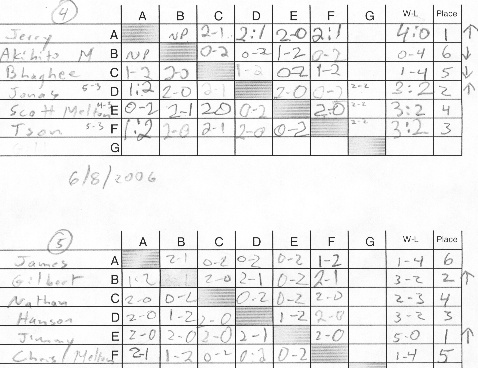 4 A B C D E F G W-L Place
Jerry A NP 2-1 2:1 2-0 2:1 4:0 1 ↑
Akihito M B NP 0-2 0-2 1-2 0-2 0-4 6 ↓
Bhaghee C 1-2 2-0 1-2 0-2 1-2 1-4 5 ↓
Jonas 5-3 D 1:2 2-0 2-1 2-0 0-2 2-2 3:2 2 ↑
Scott Melton E 0-2 2-1 2-0 0-2 2-0 2-2 3:2 4
Json 5-3 F 1:2 2-0 2-1 2-0 0-2 2-2 3:2 3
G
6/8/2006
5 A B C D E F G W-L Place
James A 2-1 0-2 0-2 0-2 1-2 1-4 6
Gilbert B 1-2 2-0 2-1 0-2 2-1 3-2 2 ↑
Nathan C 2-0 0-2 0-2 0-2 2-0 2-3 4
Hanson D 2-0 1-2 2-0 1-2 2-0 3-2 3
Jimmy E 2-0 2-0 2-0 2-1 2-0 5-0 1 ↑
Chris Melton F 2-1 1-2 0-2 0:2 0-2 1-4 5